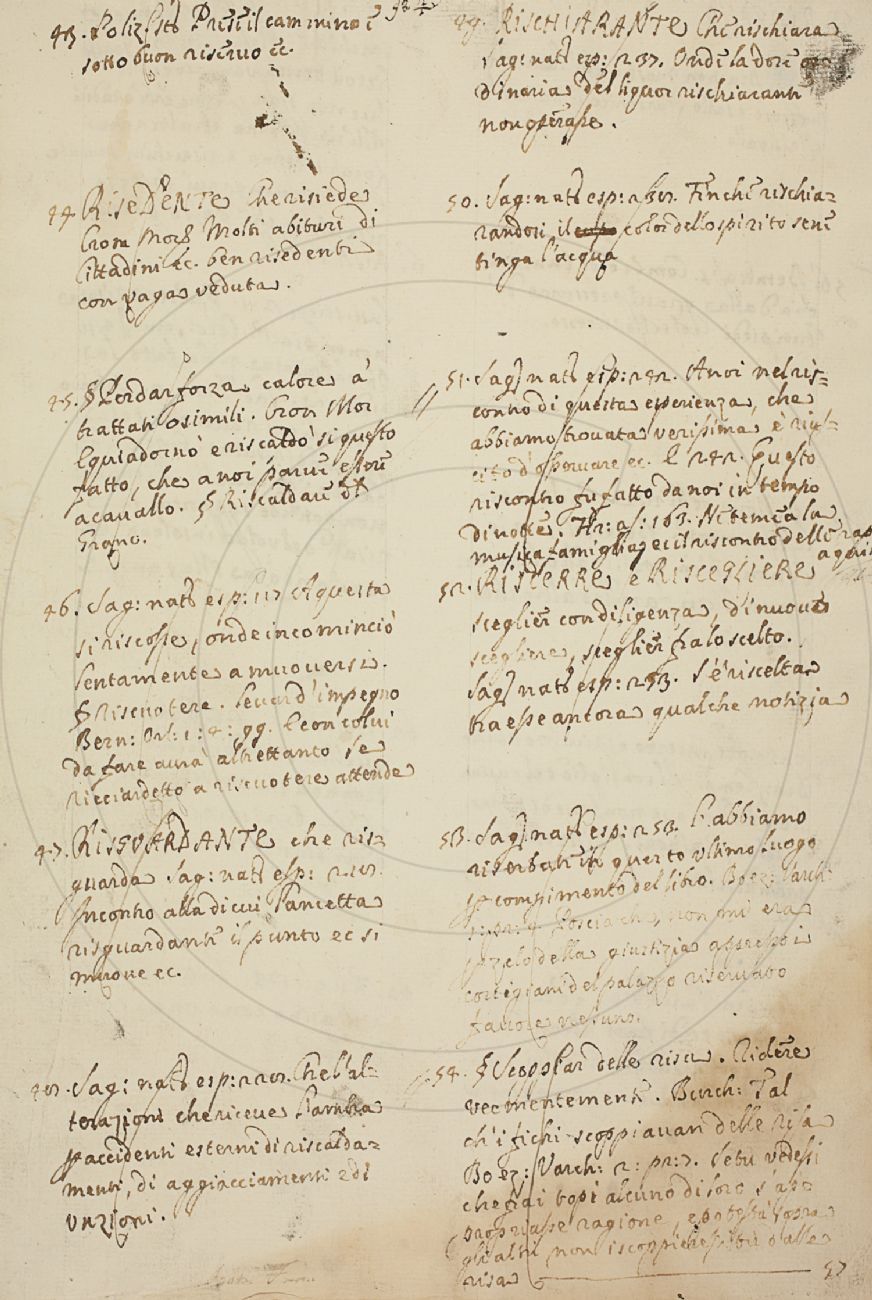 43. Poliz. St. Prese il cammino ec.
sotto buon riservo ec.
44 RISEDENTE Che risiede
Cron. Mor. Molti abituri di
Cittadini ec. ben risedenti
con vaga veduta.
45. § Per dar forza calore a'
trattati o simili. Cron Mor
E qui adornò e riscaldò sì questo
fatto, che a noi parve essere
a cavallo. § Riscaldare dt
Grano.
46. Sag: nat. esp: 117 A questa
si riscosse, onde incominciò
lentamente a muoversi.
§ Riscuotere. Levar d'impegno
Bern: Orl: 1: 4: 99. E con colui
da fare avrà altrettanto se
Ricciardetto a riscuotere attende
47. RISGUARDANTE che ris=
guarda Sag: nat. esp:
Incontro alla di cui lancetta
risguardante il punto ec si
muove ec.
48. Sag: nat. esp: Che l'al=
terazioni che riceve l'ambra
p accidenti esterni di riscalda=
menti, di agghiacciamenti e di
unzioni.
49. RISCHIARANTE Che rischiara
Sag: nat. esp: 237. Onde la dose or
dinaria del liquor rischiarante
non operasse.
50. Sag: nat. esp: Finche rischia=
randosi il color dello spirito seni
tinga l'acqua
51. Sag. nat. esp: 242. A noi nel ris=
contro di questa esperienza, che
abbiamo trovata verissima è riu=
cito d'osservare ec. E 242. Questo
riscontro fu fatto da noi in tempo
di notte. Fir: as: 163. Ne teme a la
musica famiglia, ec il riscontro delle rap
aghi
52. RISCERRE e RISCEGLIERE
scegliere con diligenza, di nuovo
scegliere, sceglier fra lo scelto.
Sag. nat. esp: 243. S'è riscelta
tra esse ancora qualche notizia
53. Sag. nat. esp: 253. L'abbiamo
riserbate in questo ultimo luogo
p compimento del libro. Boez: Varch:
Posciache, non mi era
p zelo della giustizia appresso i
cortigiani del palazzo riservato
favore nessuno.
54. § Scoppiar delle risa. Ridere
veementemente. Burch: Tal
ch'i fichi scoppiavan delle risa
Boez: Varch: 2: pr: 7. Se tu vedessi
che fra i topi alcuno di loro s'ap=
propriasse ragione, e potestà sopra
gli altri non iscoppieresti tu dalle
risa